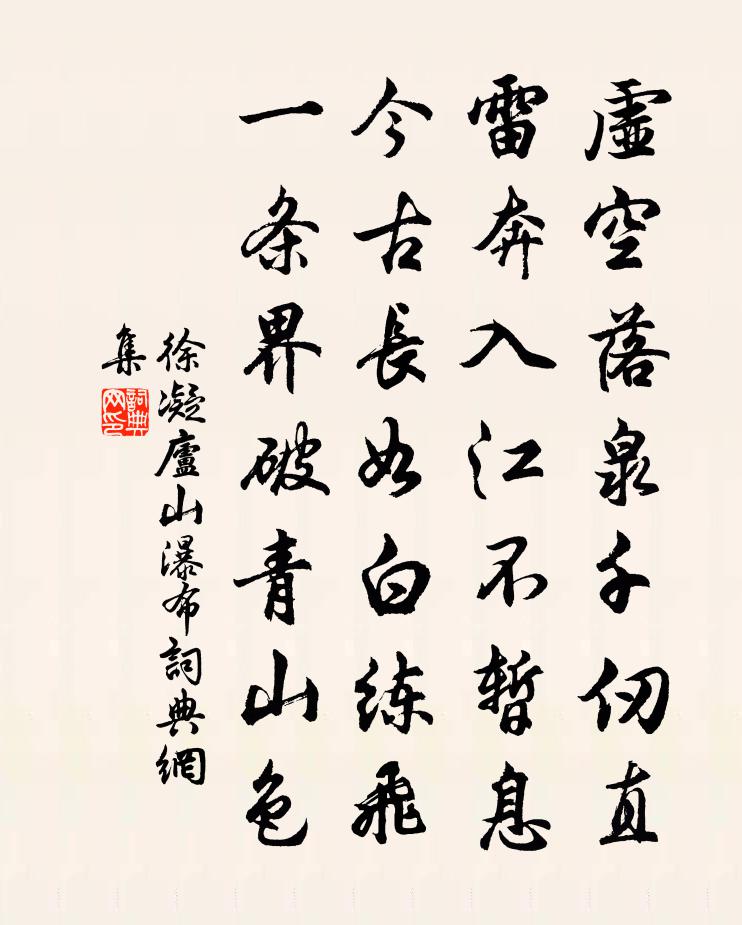 虛空落泉千仞直
雷奔入江不暫息
今古長如白练飛
一条界破青山色
徐凝廬山瀑布詞典網
集
詞典
网印